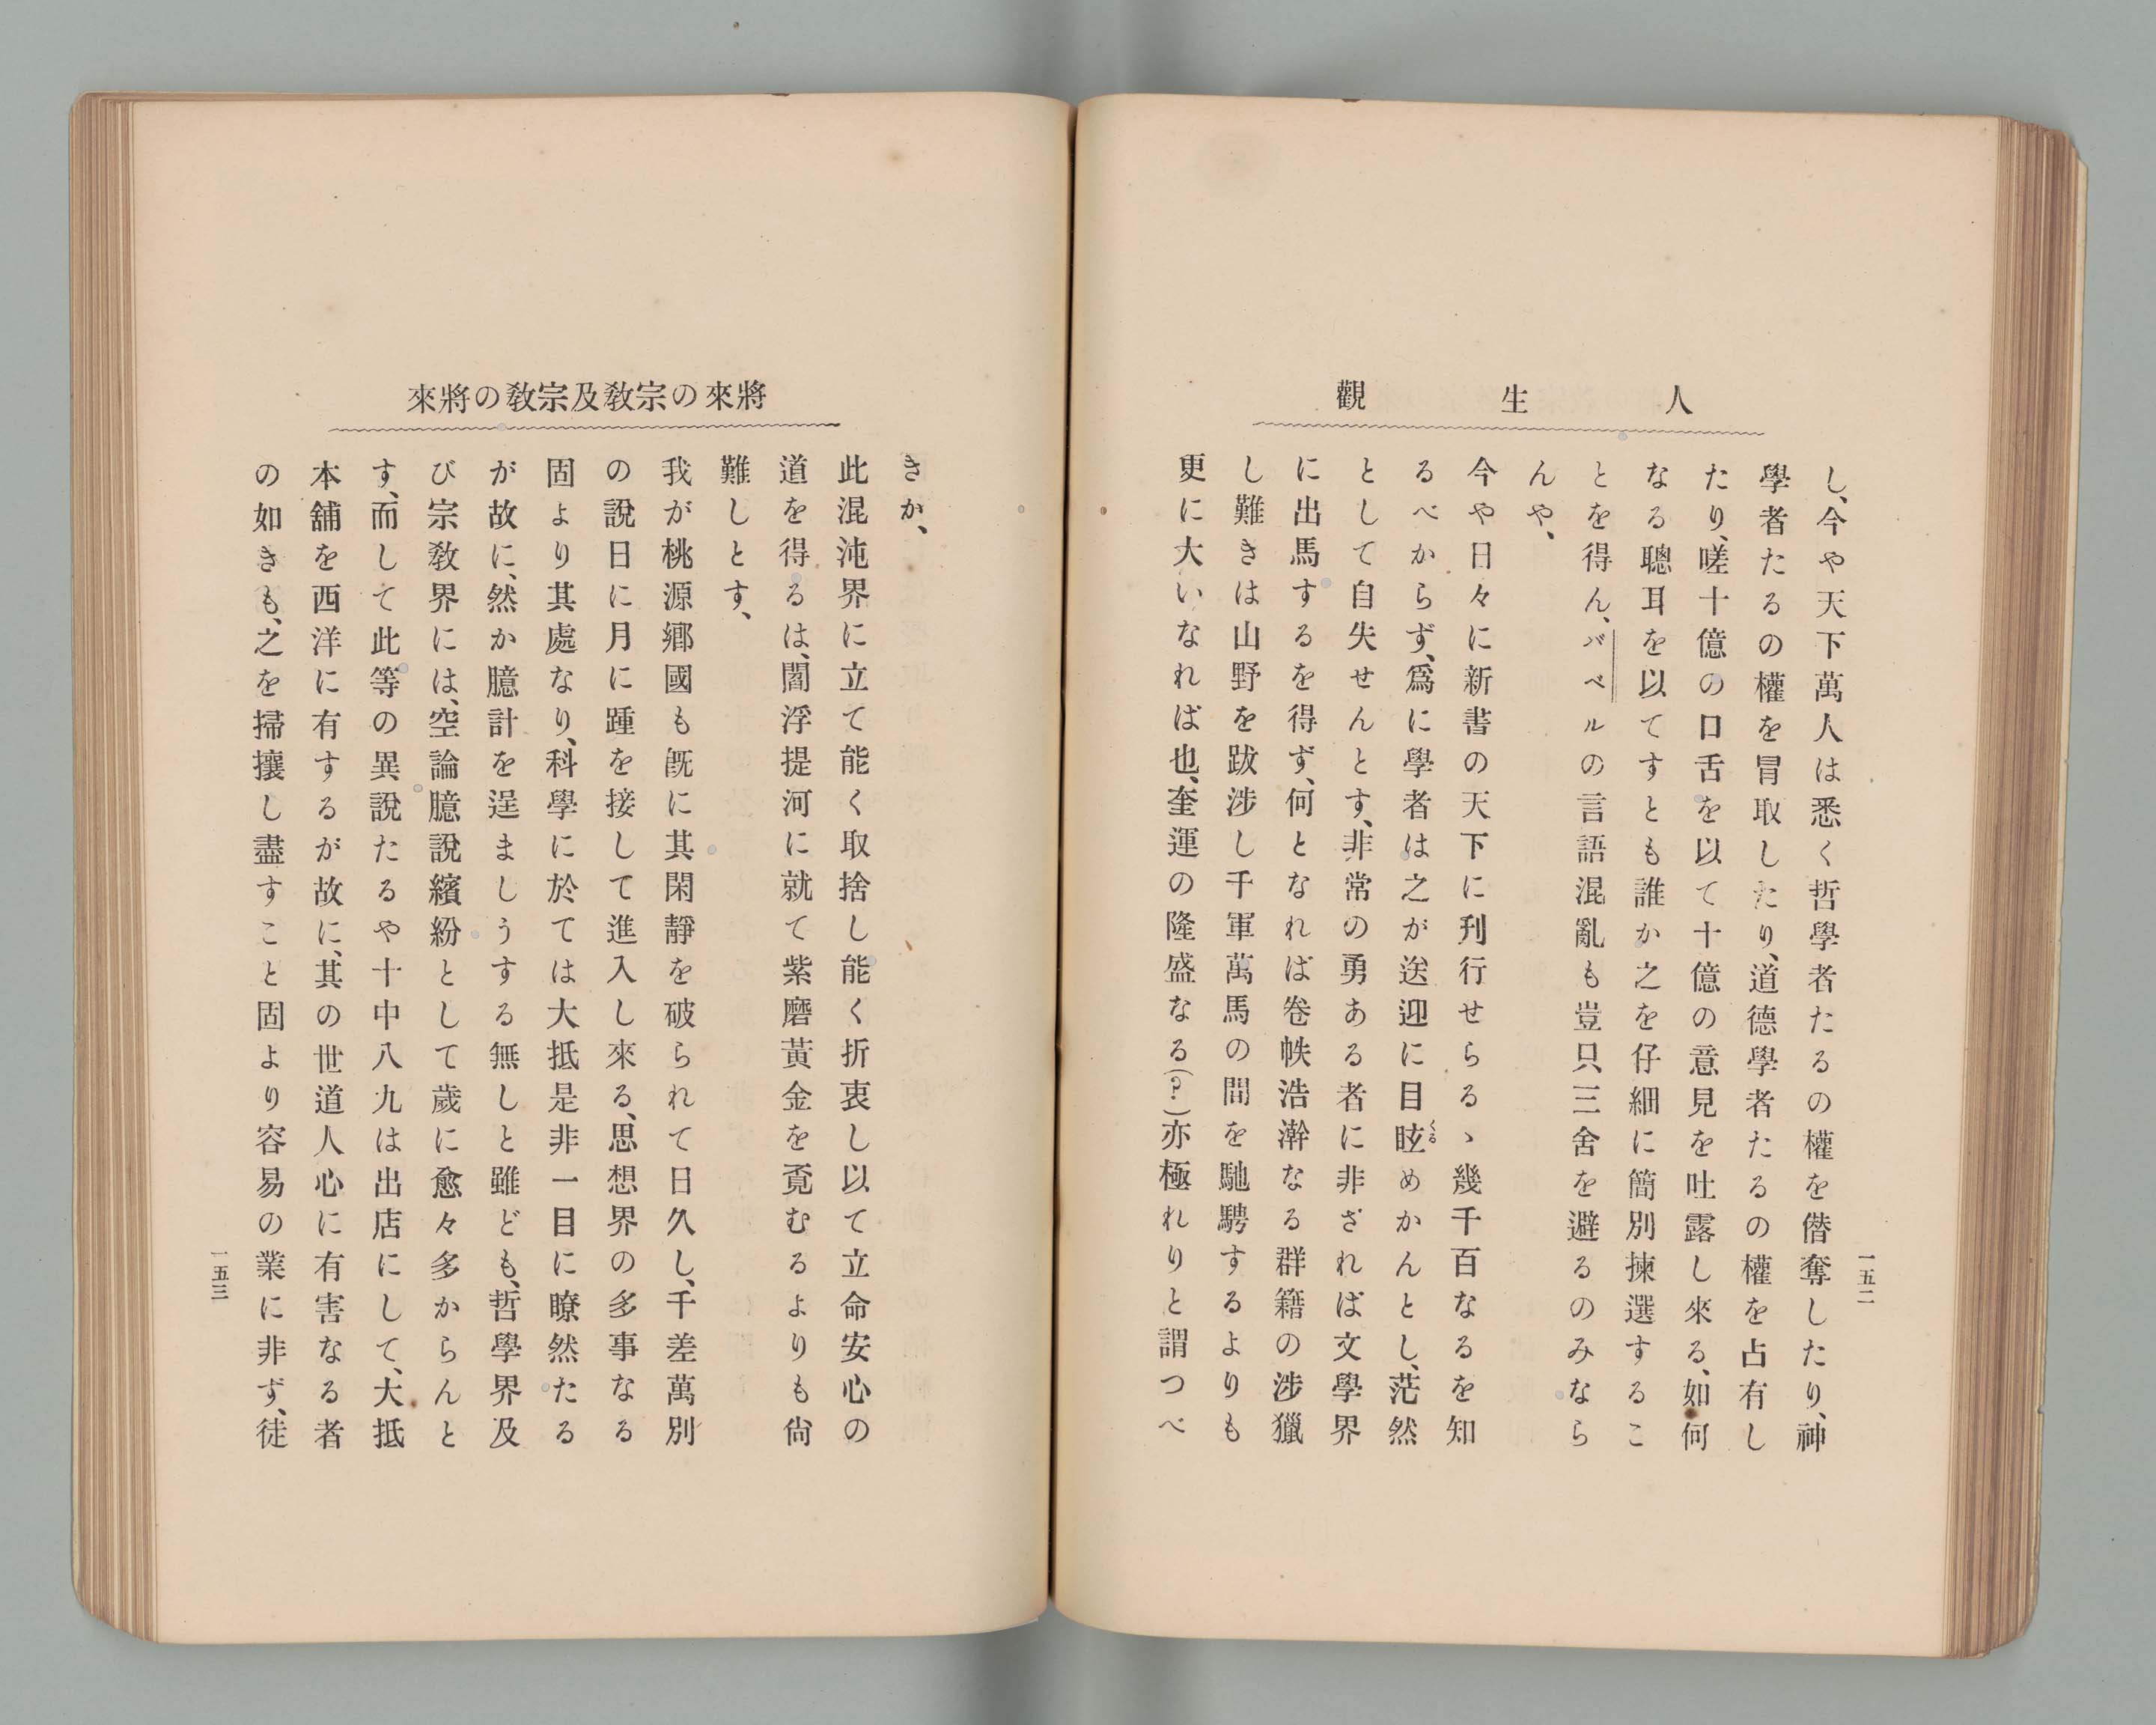 人生觀
し、今や天下萬人は悉く哲學者たるの權を僭奪したり、神
學者たるの權を冒取したり、道德學者たるの權を占有し
たり、嗟十億の口舌を以て十億の意見を吐露し來る、如何
なる聰耳を以てすとも誰か之を仔細に簡別揀選するこ
とを得ん、バベルの言語混亂も豈只三舍を避るのみなら
んや、
今や日々に新書の天下に刊行せらるゝ幾千百なるを知
るべからず、爲に學者は之が送迎に目眩めかんとし、茫然
くる
として自失せんとす、非常の勇ある者に非ざれば文學界
に出馬するを得ず、何となれば卷帙浩澣なる群籍の涉獵
し難きは山野を跋涉し千軍萬馬の間を馳騁するよりも
更に大いなれば也、奎運の隆盛なる(?)亦極れりと謂つべ
一五二
將來の宗敎及宗敎の將來
きか、
此混沌界に立て能く取捨し能く折衷し以て立命安心の
道を得るは、閻浮提河に就て紫磨黃金を覔むるよりも尙
難しとす、
我が桃源鄕國も旣に其閑靜を破られて日久し、千差萬別
の說日に月に踵を接して進入し來る、思想界の多事なる
固より其處なり、科學に於ては大抵是非一目に瞭然たる
が故に、然か臆計を逞ましうする無しと雖ども、哲學界及
び宗敎界には、空論臆說繽紛として歲に愈々多からんと
す、而して此等の異說たるや十中八九は出店にして、大抵
本舖を西洋に有するが故に、其の世道人心に有害なる者
の如きも、之を掃攘し盡すこと固より容易の業に非ず、徒
一五三